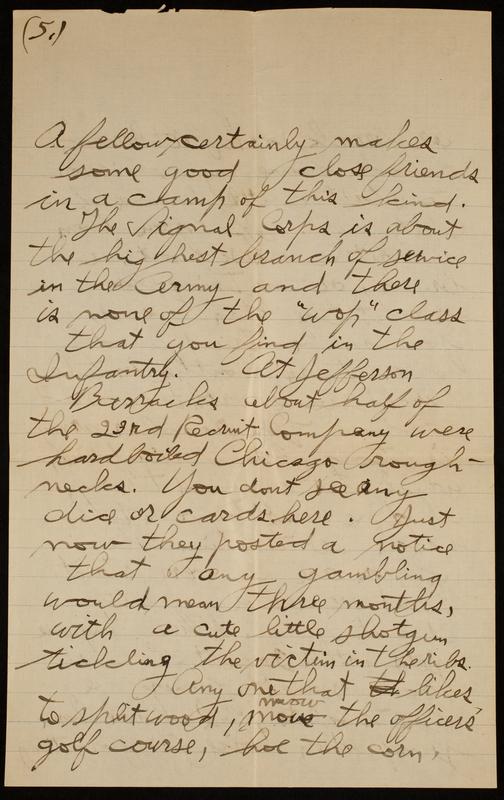 (5.)
A fellow certainly makes
some good close friends
in a camp of this kind.
The Signal Corps is about
the highest branch of service
in the Army and there
is none of the "wop" class
that you find in the
Infantry. At Jefferson
Barracks about half of
the 23rd Recruit Company were
hardboiled Chicago rough-
necks. You dont see any
dice or cards here. Just
now they posted a notice
that any gambling
would mean three months,
with a cute little shotgun
tickling the victim in the ribs.
Any one that likes
to split wood, mow the officers'
golf course, hoe the corn,